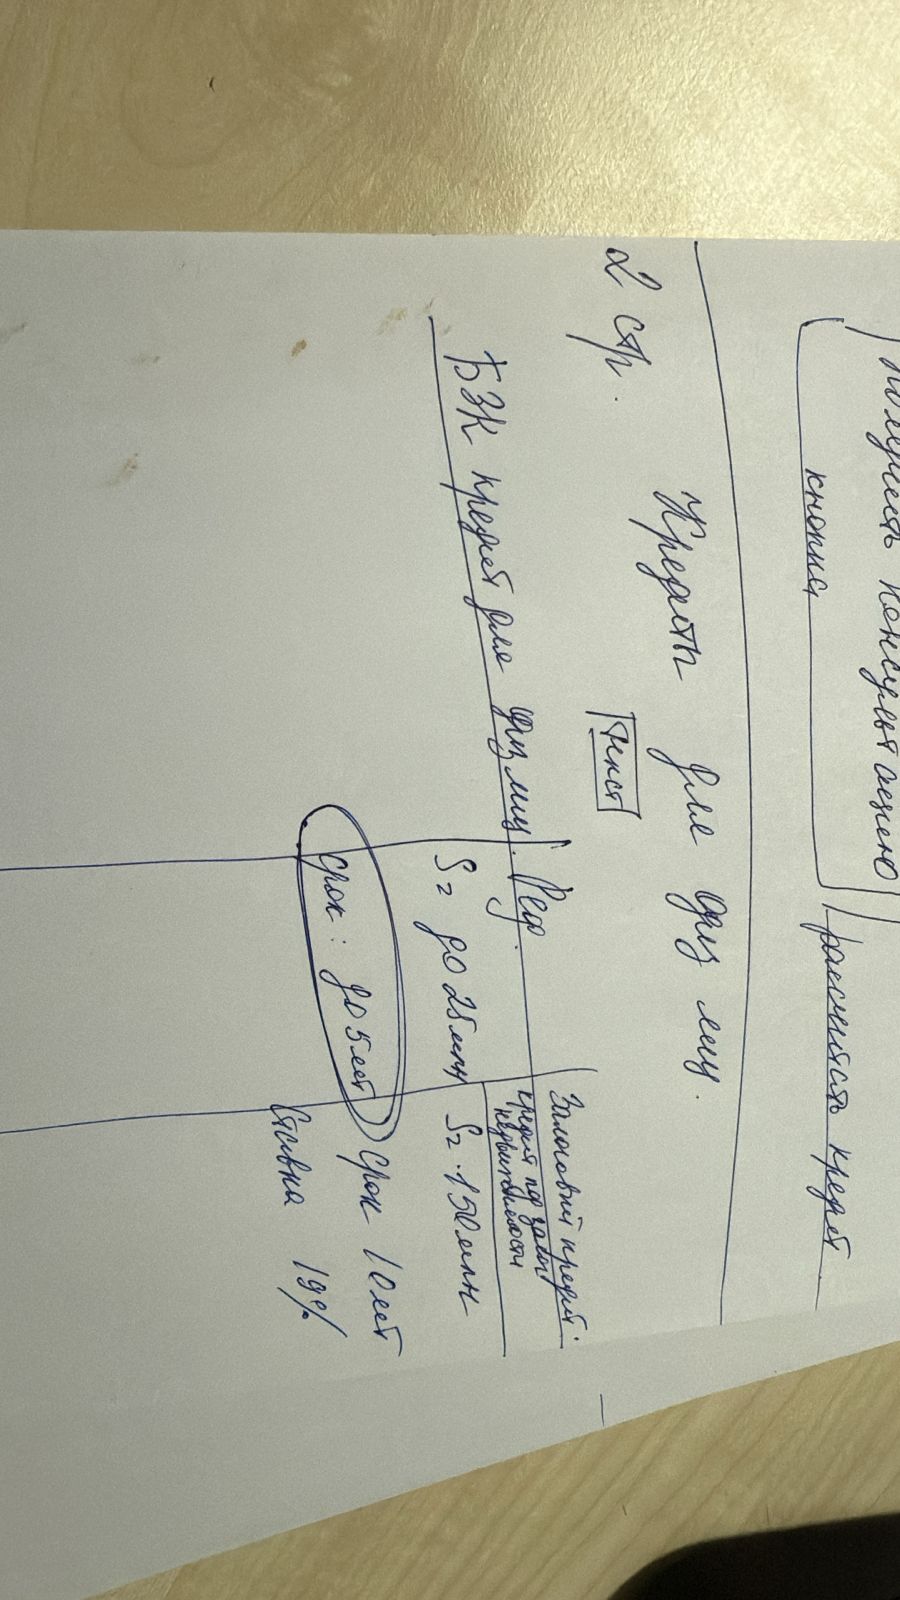 получить консультацию
кнопка
рассчитать кредит
2 стр.
Кредиты для физ лиц.
текст
БЗК кредит для физ лиц.
Реф.
Залоговый кредит.
кредит под залог
недвижимости
S = до 25 млн
S = 150 млн
срок: до 5 лет
срок 10 лет
Ставка 19%